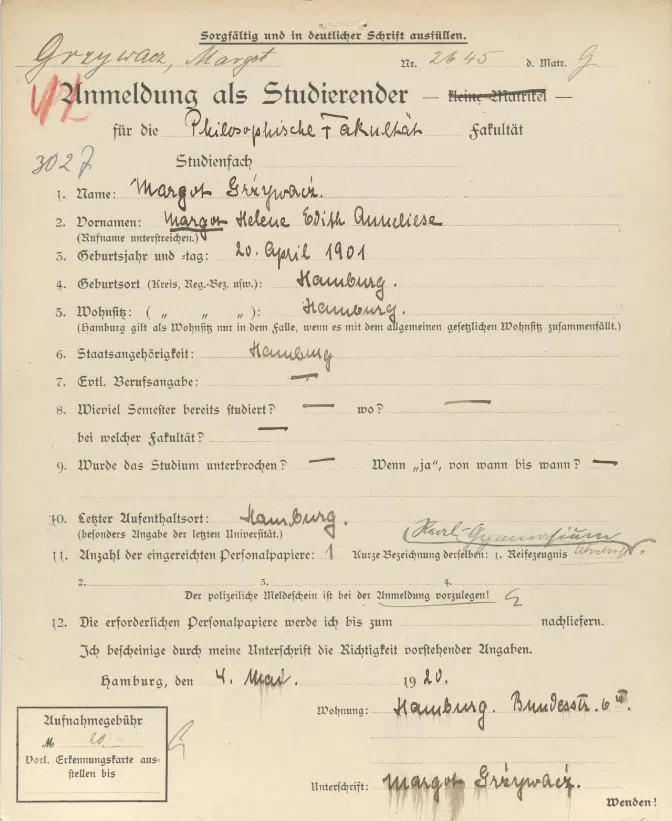 Sorgfältig und in deutlicher Schrift ausfüllen.
Grzywacz, Margot
Nr. 2645 d. Matr. G
Anmeldung als Studierender — kleine Matrikel —
für die Philosophische Fakultät Fakultät
3027
Studienfach
1. Name: Margot Grźywacź.
2. Vornamen: Margot Helene Edith Anneliese
(Rufname unterstreichen.)
3. Geburtsjahr und =tag: 20. April 1901
4. Geburtsort (Kreis, Reg.-Bez. usw.): Hamburg.
5. Wohnsitz: ( „ „ „ ): Hamburg.
(Hamburg gilt als Wohnsitz nur in dem Falle, wenn es mit dem allgemeinen gesetzlichen Wohnsitz zusammenfällt.)
6. Staatsangehörigkeit: Hamburg
7. Evtl. Berufsangabe: —
8. Wieviel Semester bereits studiert? — wo? —
bei welcher Fakultät? —
9. Wurde das Studium unterbrochen? — Wenn „ja", von wann bis wann? —
10. Letzter Aufenthaltsort: Hamburg.
(besonders Angabe der letzten Universität.)
Real-Gymnasium
11. Anzahl der eingereichten Personalpapiere: 1 Kurze Bezeichnung derselben: 1. Reifezeugnis
2. 3. 4.
Der polizeiliche Meldeschein ist bei der Anmeldung vorzulegen!
12. Die erforderlichen Personalpapiere werde ich bis zum nachliefern.
Ich bescheinige durch meine Unterschrift die Richtigkeit vorstehender Angaben.
Hamburg, den 4. Mai. 1920.
Wohnung: Hamburg. Bundesstr. 6 III.
Aufnahmegebühr
M 20.-
Vorl. Erkennungskarte aus-
stellen bis
Unterschrift: Margot Grźywacź.
Wenden!